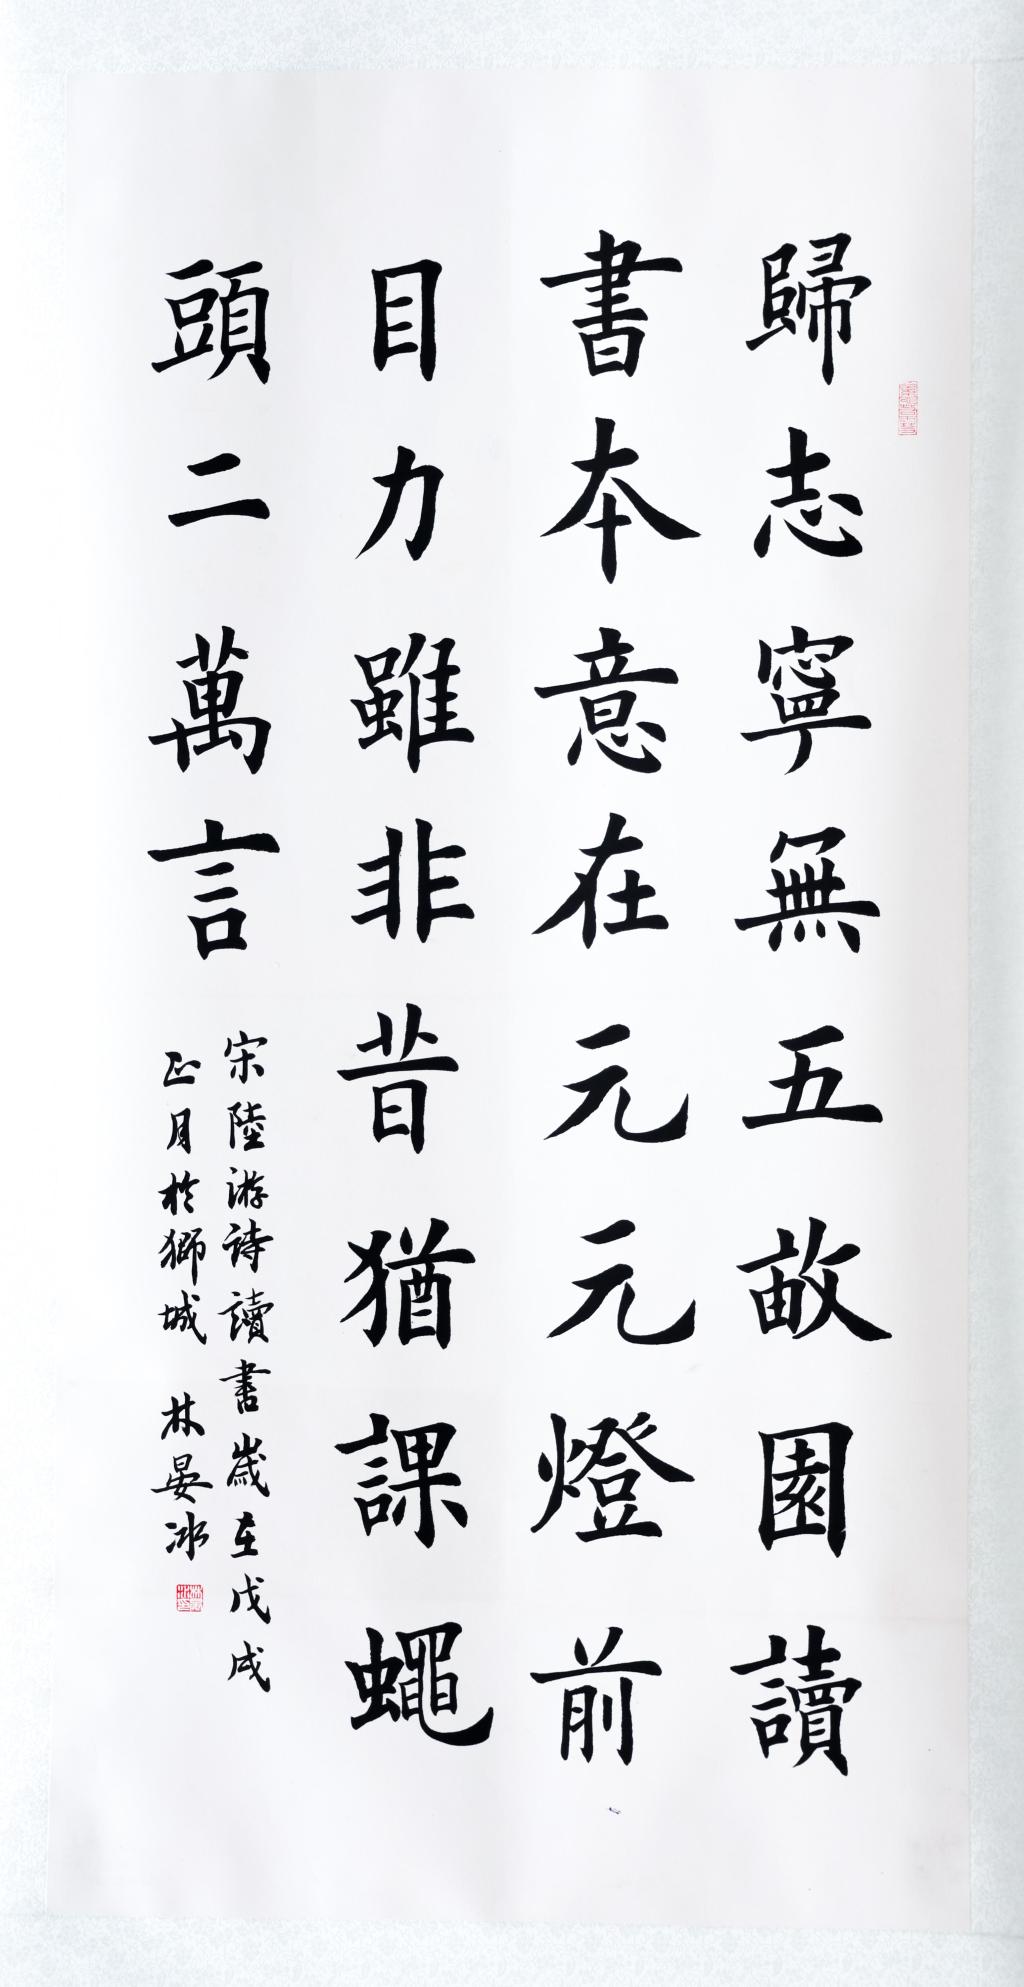 歸志寧無五畝園讀
書本意在元元燈前
目力雖非昔猶課蠅
頭二萬言
宋陸游詩讀書歲在戊戌
正月於獅城 林晏冰